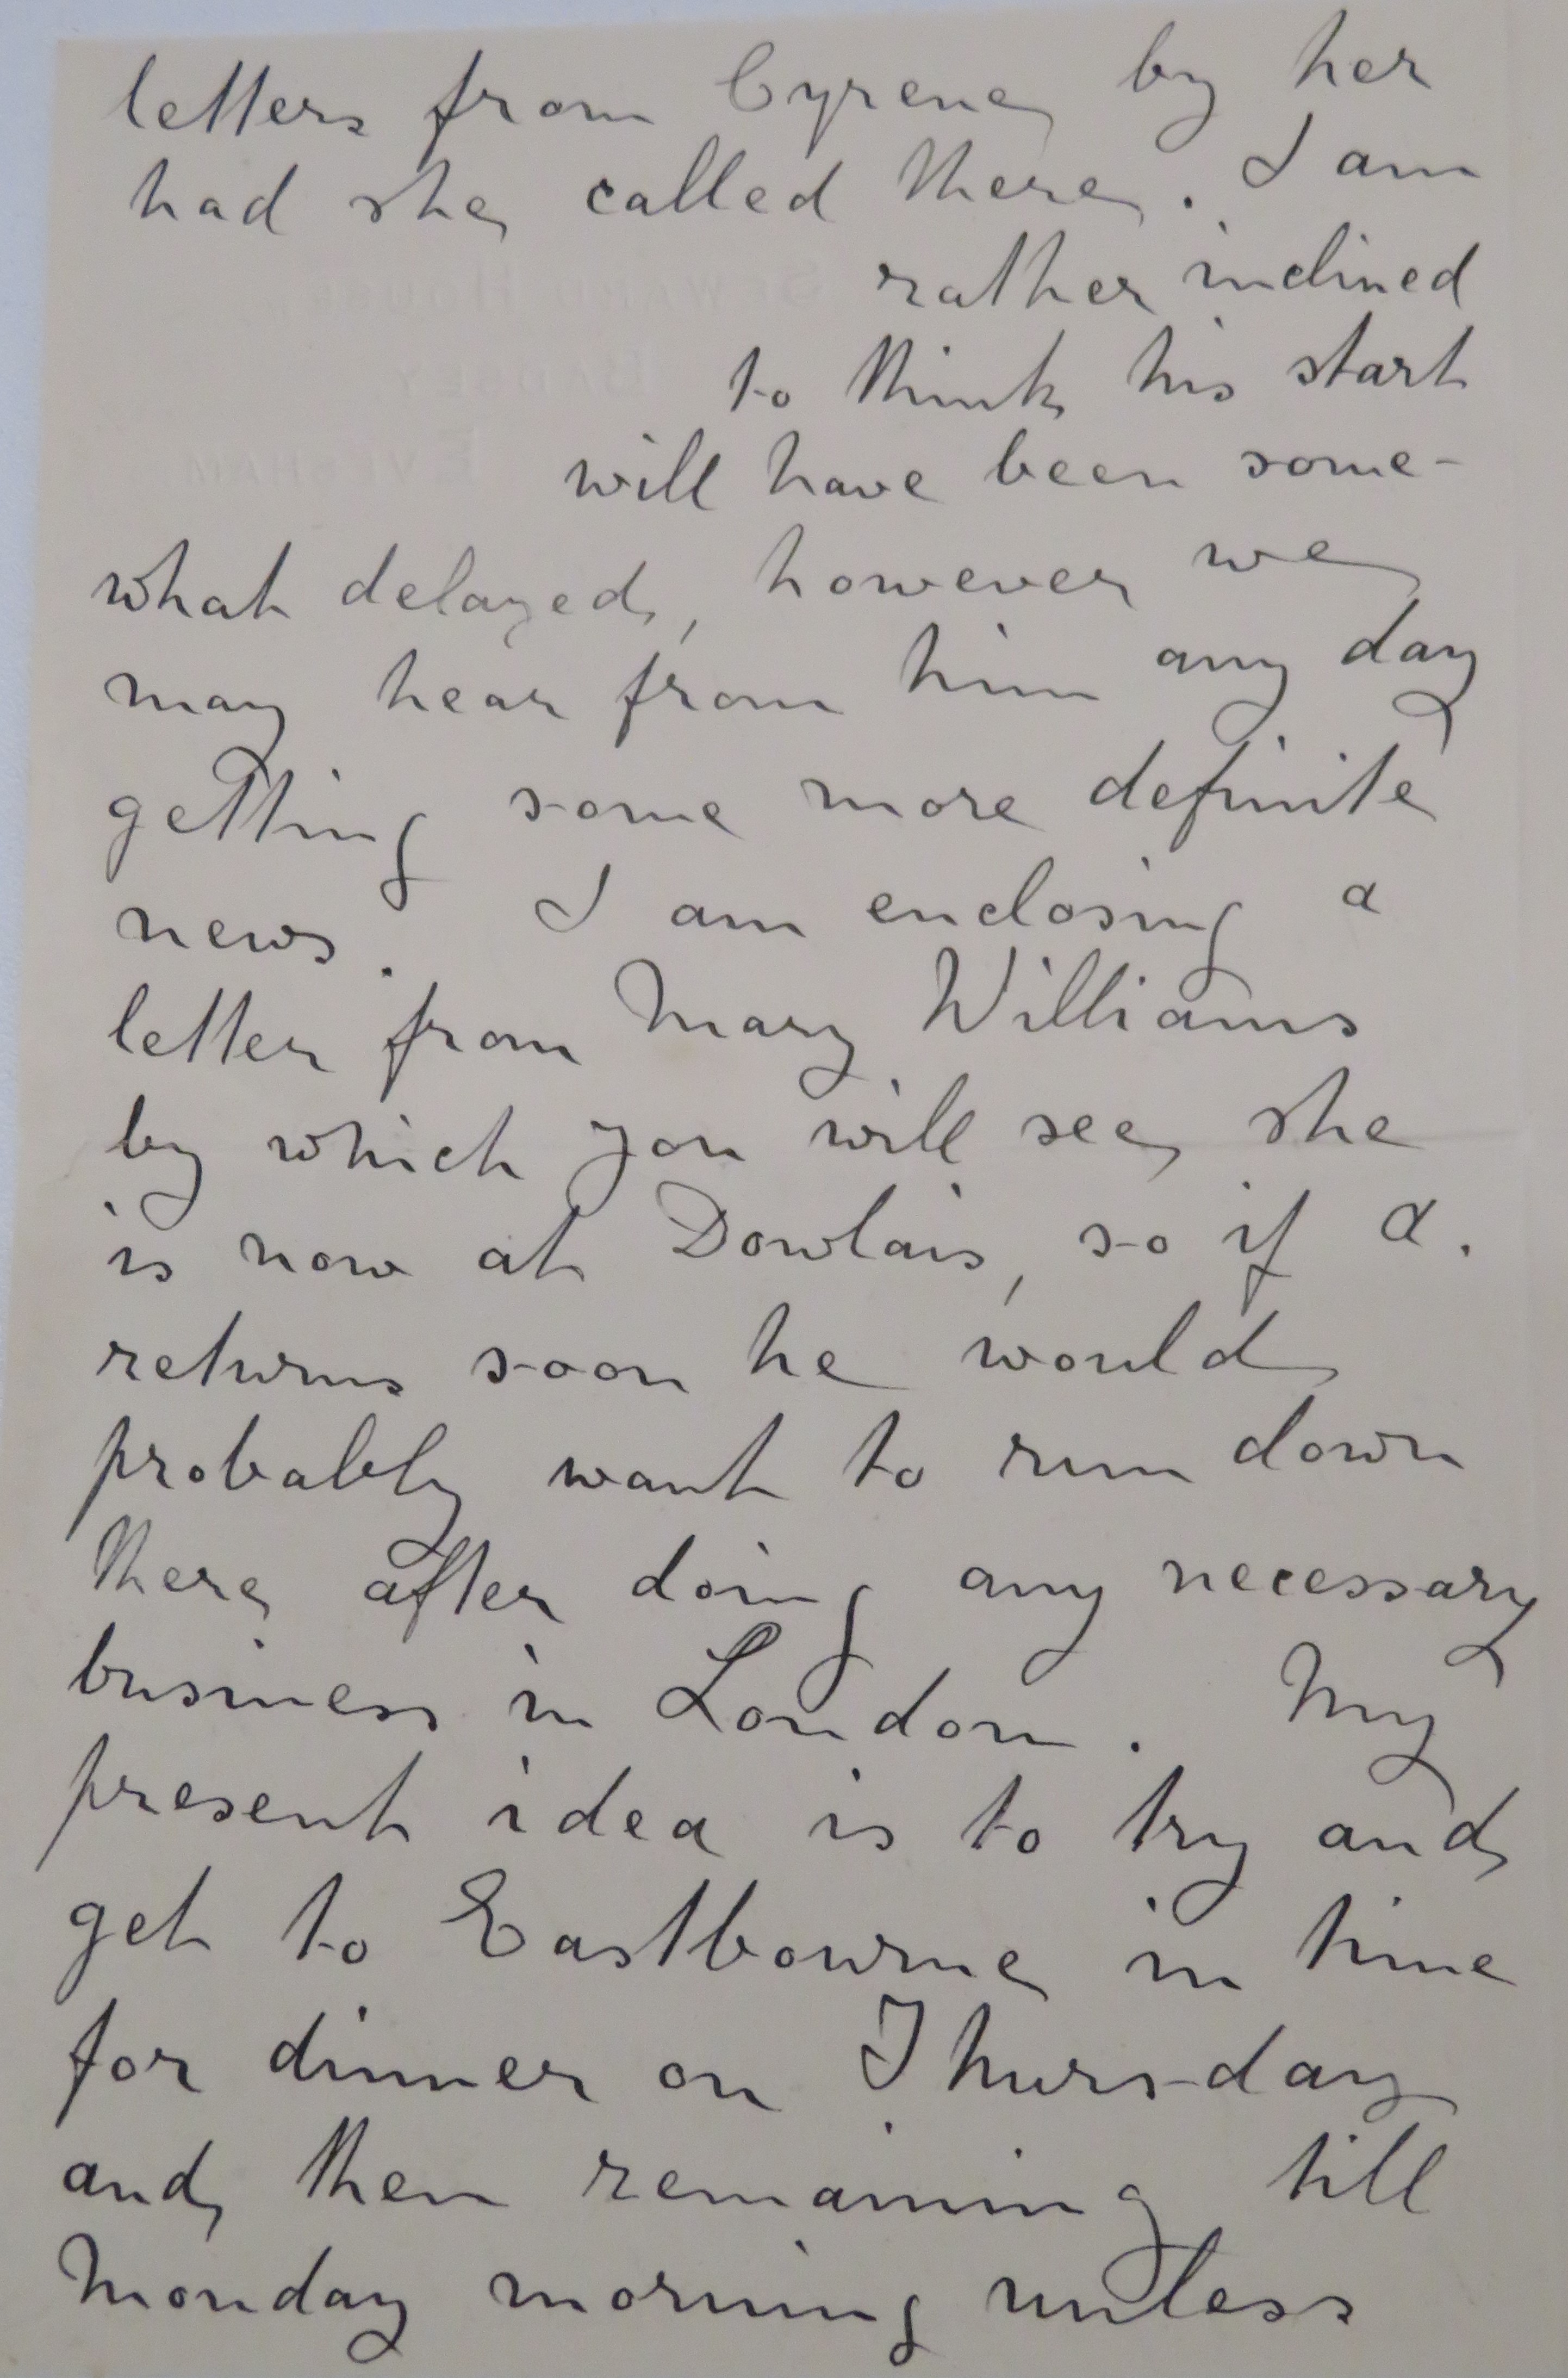 letters from Cyrene by her
had she called there. I am
rather inclined
to think his start
will have been some-
what delayed, however we
may hear from him any day
getting some more definite
news. I am enclosing a
letter from Mary Williams
by which you will see she
is now at Dowlais, so if A.
returns soon he would
probably want to run down
there after doing any necessary
business in London. My
present idea is to try and
get to Eastbourne in time
for dinner on Thursday
and then remaining till
Monday morning unless